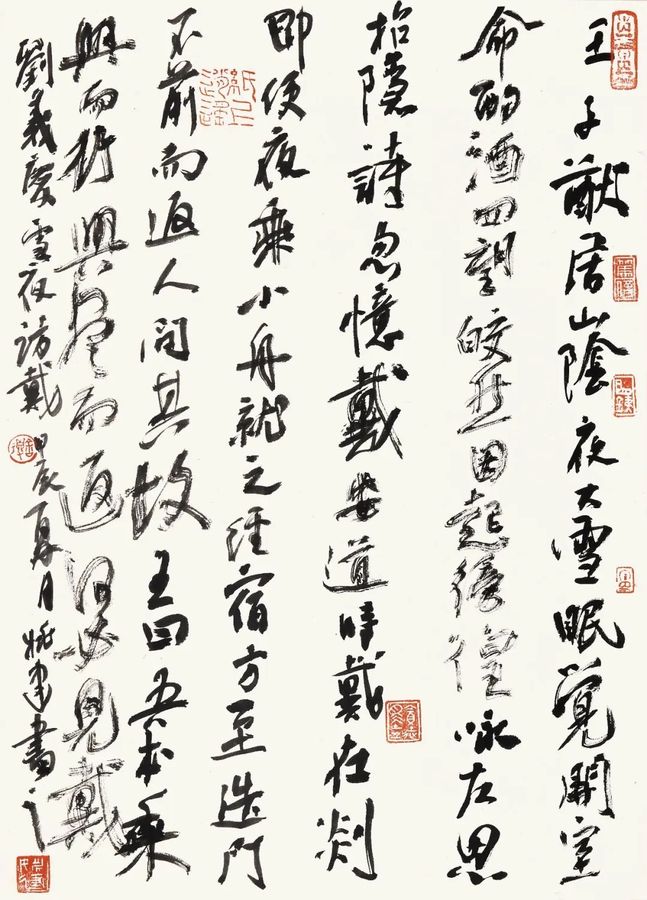 王子猷居山陰夜大雪眠覺開室
命酌酒四望皎然因起彷徨咏左思
招隱詩忽憶戴安道時戴在剡
即便夜乘小舟就之經宿方至造門
不前而返人問其故王曰吾本乘
興而行興盡而返何必見戴
劉義慶雪夜訪戴 甲辰夏月 建書